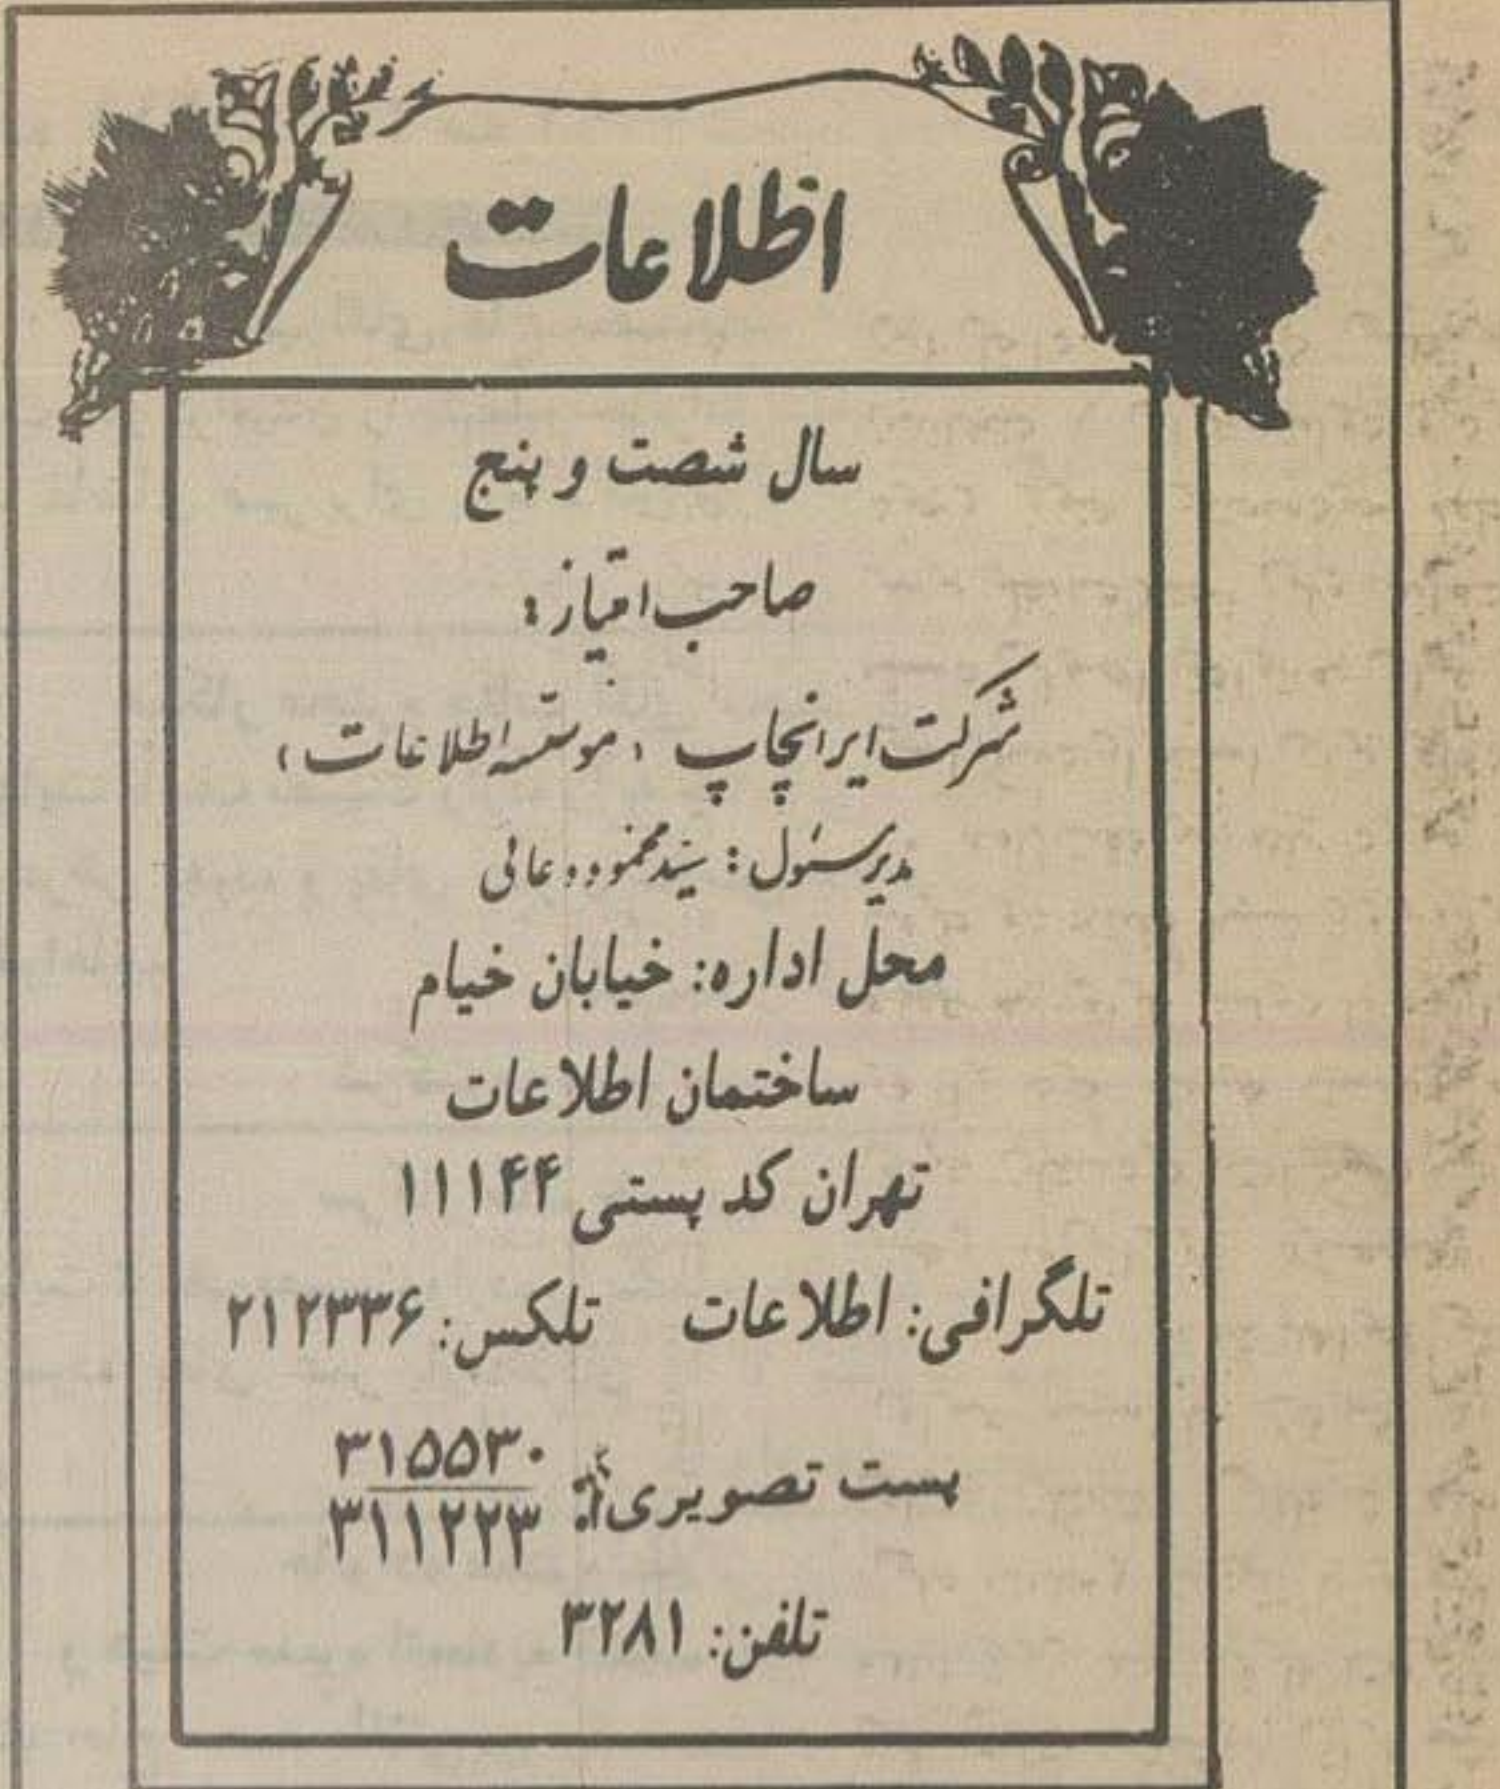 اطلاعات
سال شصت و پنج
صاحب امتیاز:
شرکت ایرانچاپ «موسسه اطلاعات»
مدیر مسئول: سید محمود دعائی
محل اداره: خیابان خیام
ساختمان اطلاعات
تهران کد پستی ۱۱۱۴۴
تلگرافی: اطلاعات تلکس: ۲۱۲۳۳۶
پست تصویری: ۳۱۵۵۳۰
۳۱۱۲۲۳
تلفن: ۳۲۸۱